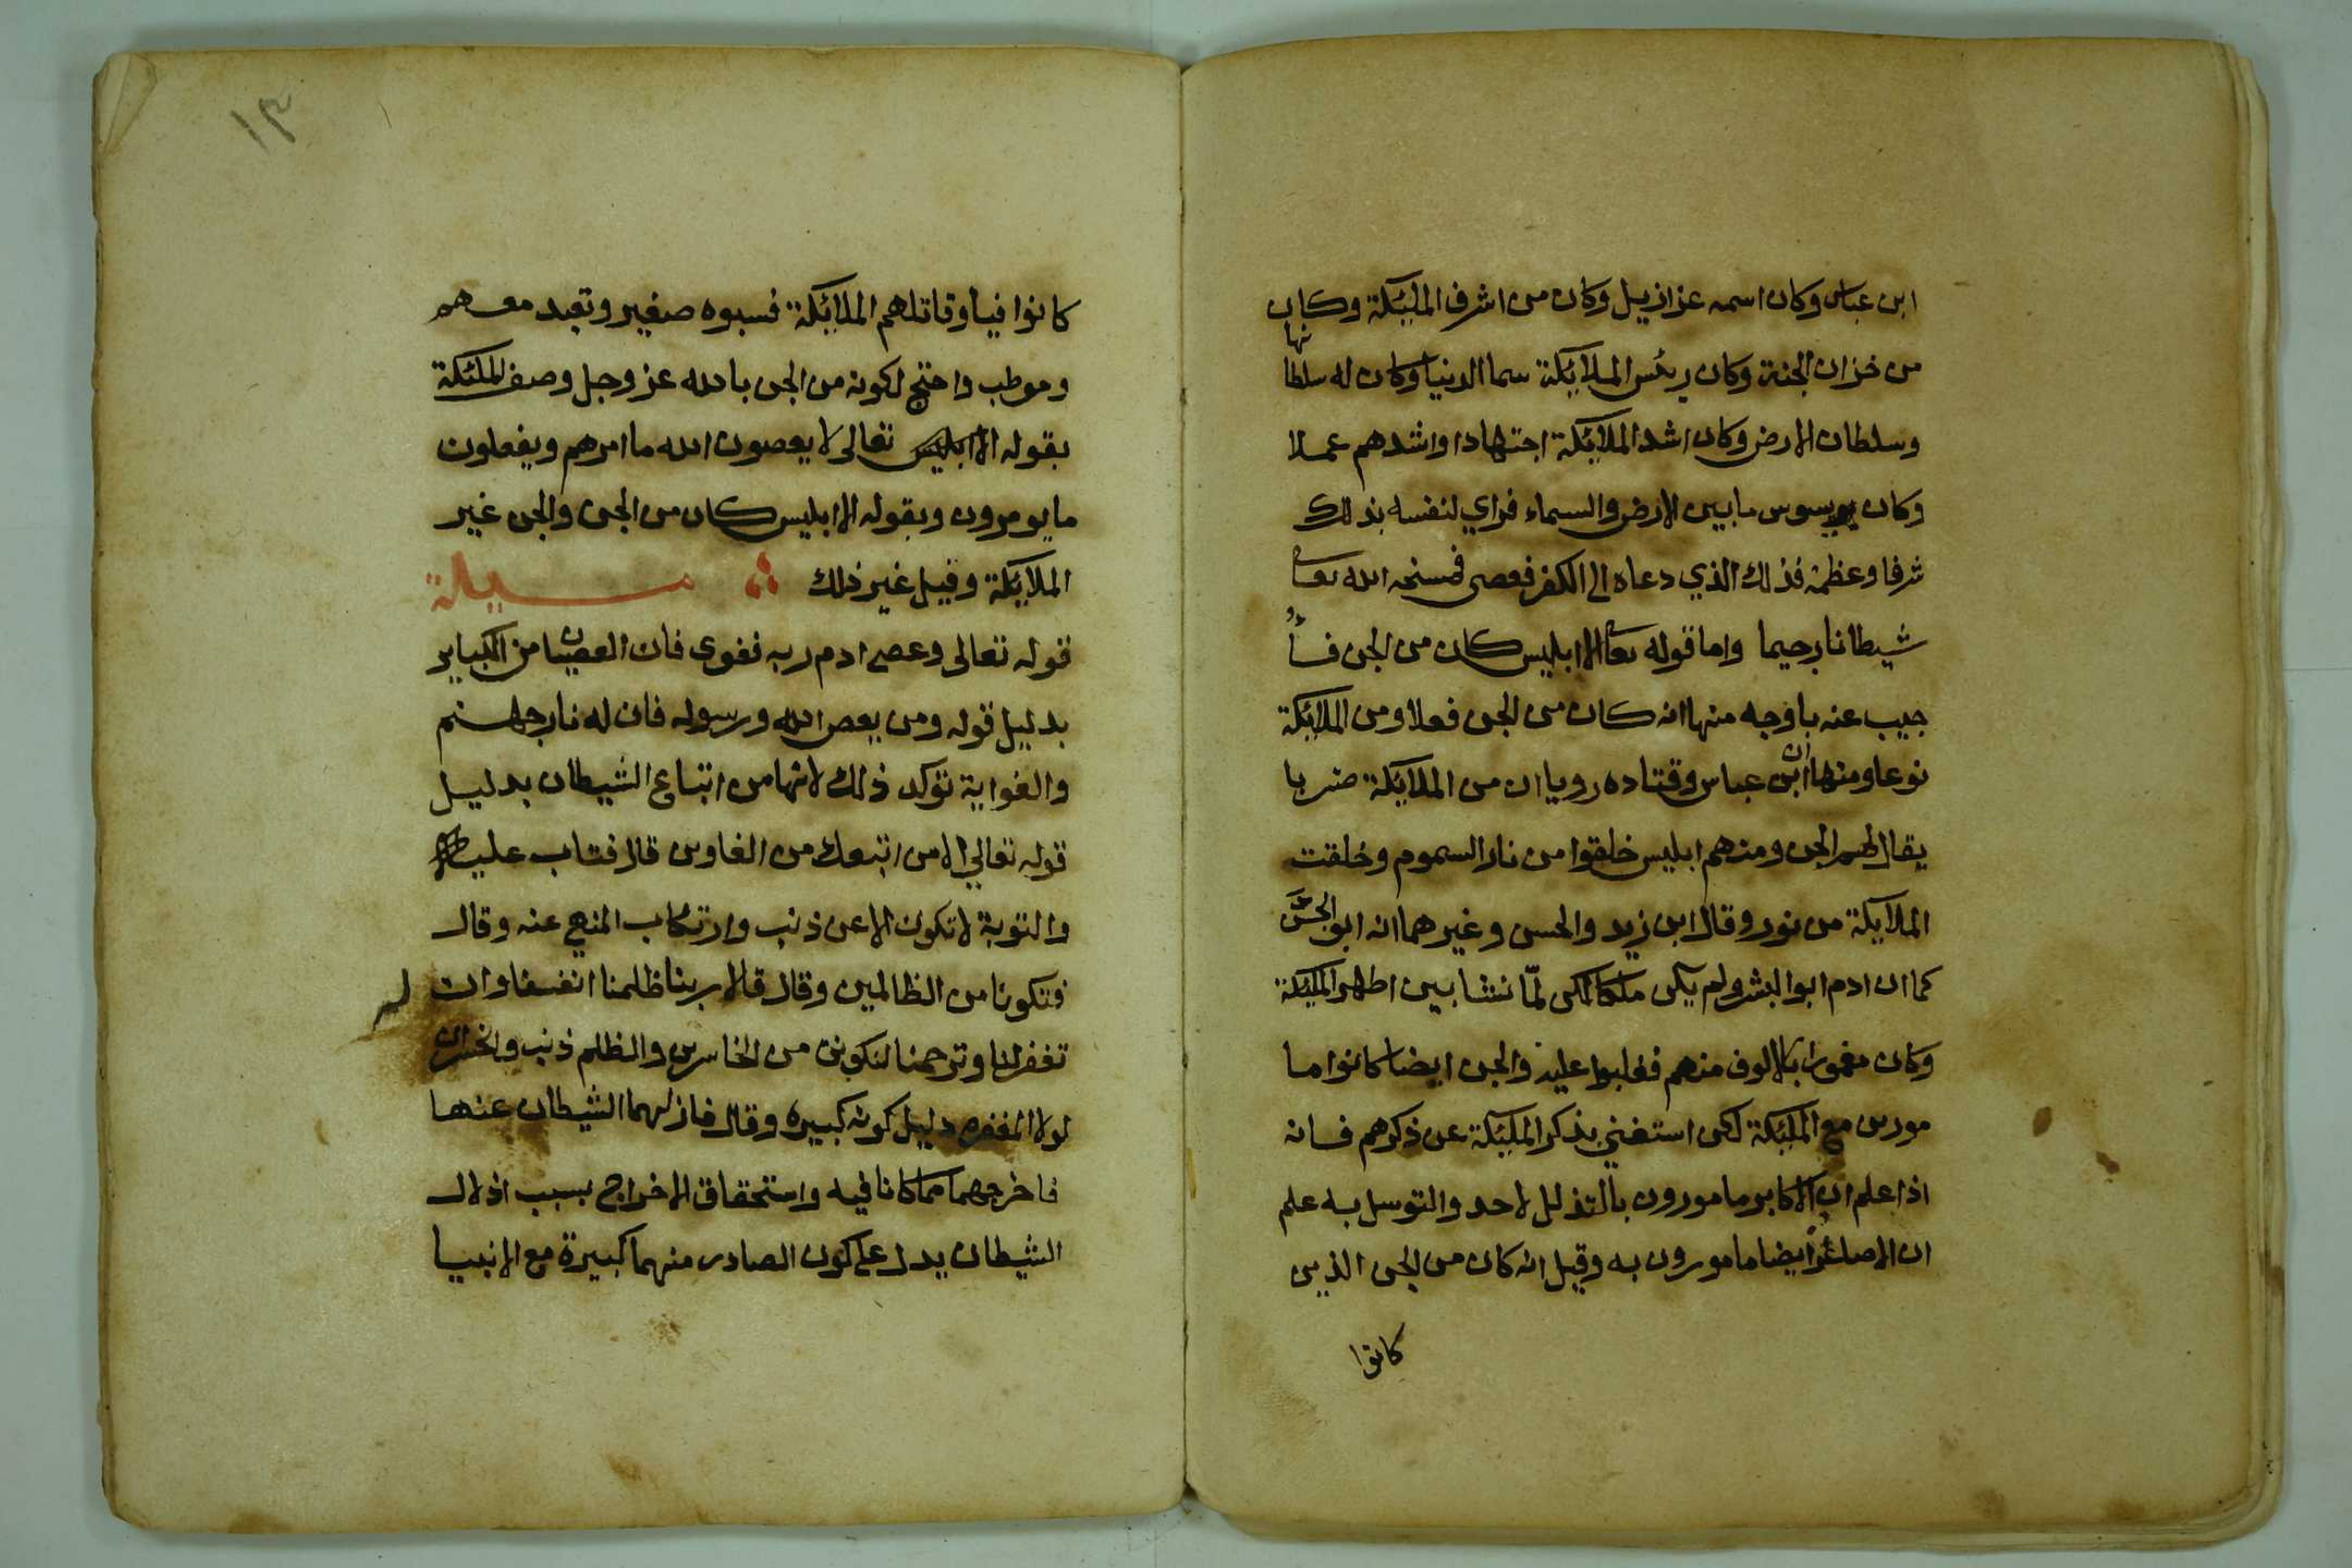 ابن عباس وكان اسمه عزازيل وكان من اشرف المليكة وكان
من خزان الجنة وكان ريس الملايكة سما الدنيا وكان له سلطانها
وسلطان الارض وكان اشد الملايكة اجتهادا واشدهم عملا
وكان يوسوس مابين الارض والسماء فراي لنفسه بذلك
شرفا وعظمة فذلك الذي دعاه الى الكفر فعصى فمسخه الله تعا
شيطانا رجيما واما قوله تعا الا ابليس كان من الجن فأ
جيب عنه باوجه منها انه كان من الجن فعلا ومن الملائكة
نوعا ومنها ان ابن عباس وقتاده رويا ان من الملايكة ضربا
يقال لهم الجن ومنهم ابليس خلقوا من نار السموم وخلقت
الملايكة من نور وقال ابن زيد والحسن وغيرهما انه ابو الجن
كما ان ادم ابو البشر ولم يكن ملكا لكن لما نشا بين اظهر المليكة
وكان مغمورا بالالوف منهم فغلبوا عليه والجن ايضا كانوا ما
مورين مع المليكة لكن استغني بذكر المليكة عن ذكرهم فانه
اذا علم ان الاكابر مامورون بالتذلل لاحد والتوسل به علم
ان الاصاغر ايضا مامورون به وقيل انه كان من الجن الذين
كانوا
١٣
كانوا فيها وقاتلهم الملائكة فسبوه صغير وتعبد معهم
وموطب واحتج لكونه من الجن بان الله عز وجل وصف الملئكة
بقوله تعالى لا يعصون الله ما امرهم ويفعلون
ما يومرون وبقوله الا ابليس كان من الجن والجن غير
الملايكة وقيل غير ذلك مسيلة
قوله تعالى وعصى ادم ربه فغوى فان العصيان من الكباير
بدليل قوله ومن يعص الله ورسوله فان له نار جهنم
والغواية توكد ذلك لانها من اتباع الشيطان بدليل
قوله تعالي الا من اتبعك من الغاوين قال فتاب عليه
والتوبة لا تكون الا عن ذنب وارتكاب المنهي عنه وقال
فتكونا من الظالمين وقال قالا ربنا ظلمنا انفسنا وان لم
تغفر لنا وترحمنا لنكونن من الخاسرين والظلم ذنب والخسران
لولا المغفره دليل كونه كبيره وقال فازلهما الشيطان عنها
فاخرجهما مما كانا فيه واستحقاق الاخراج بسبب ازلال
الشيطان يدل على كون الصادر منهما كبيرة مع الانبيا